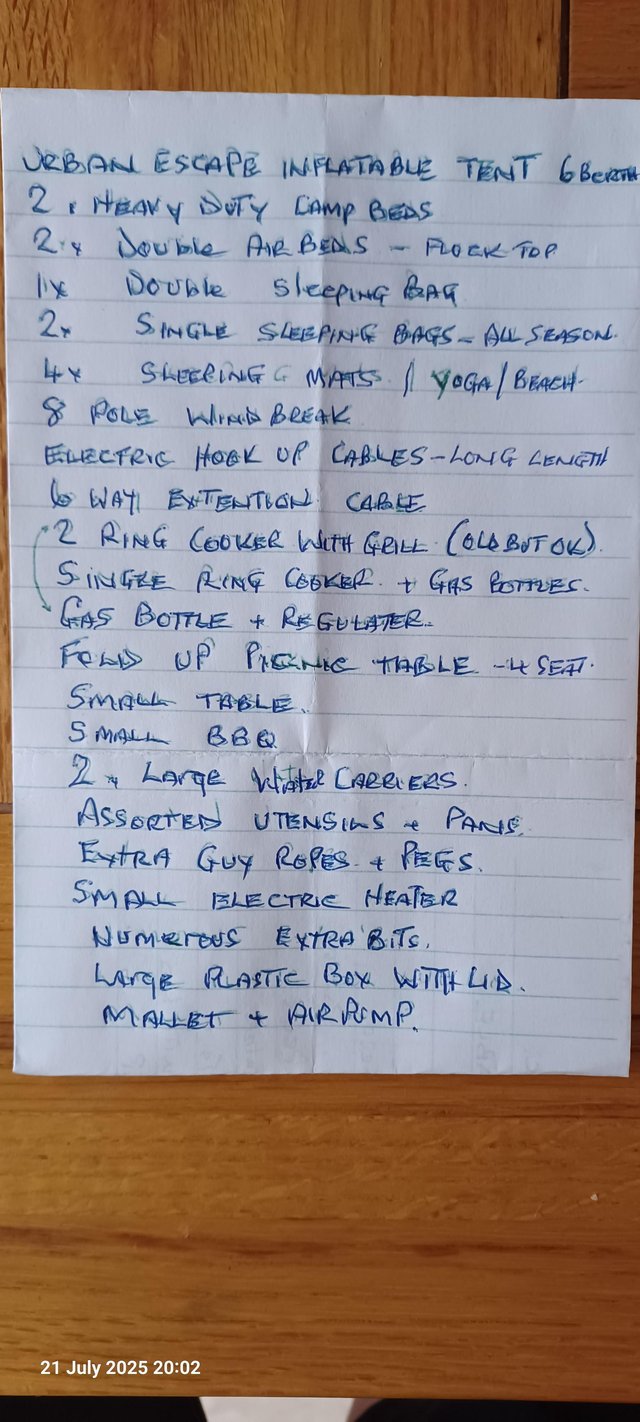 URBAN ESCAPE INFLATABLE TENT 6 BERTH
2 x HEAVY DUTY CAMP BEDS
2 x DOUBLE AIR BEDS - FLOCK TOP
1x DOUBLE SLEEPING BAG
2x SINGLE SLEEPING BAGS - ALL SEASON.
4x SLEEPING MATS / YOGA / BEACH.
8 POLE WINDBREAK
ELECTRIC HOOK UP CABLES - LONG LENGTH
6 WAY EXTENTION CABLE
2 RING COOKER WITH GRILL (OLD BUT OK).
SINGLE RING COOKER. + GAS BOTTLES.
GAS BOTTLE + REGULATER.
FOLD UP PICNIC TABLE - 4 SEAT.
SMALL TABLE.
SMALL BBQ
2 x LARGE WATER CARRIERS.
ASSORTED UTENSILS + PANS.
EXTRA GUY ROPES + PEGS.
SMALL ELECTRIC HEATER
NUMEROUS EXTRA BITS.
LARGE PLASTIC BOX WITH LID.
MALLET + AIR PUMP.
21 July 2025 20:02